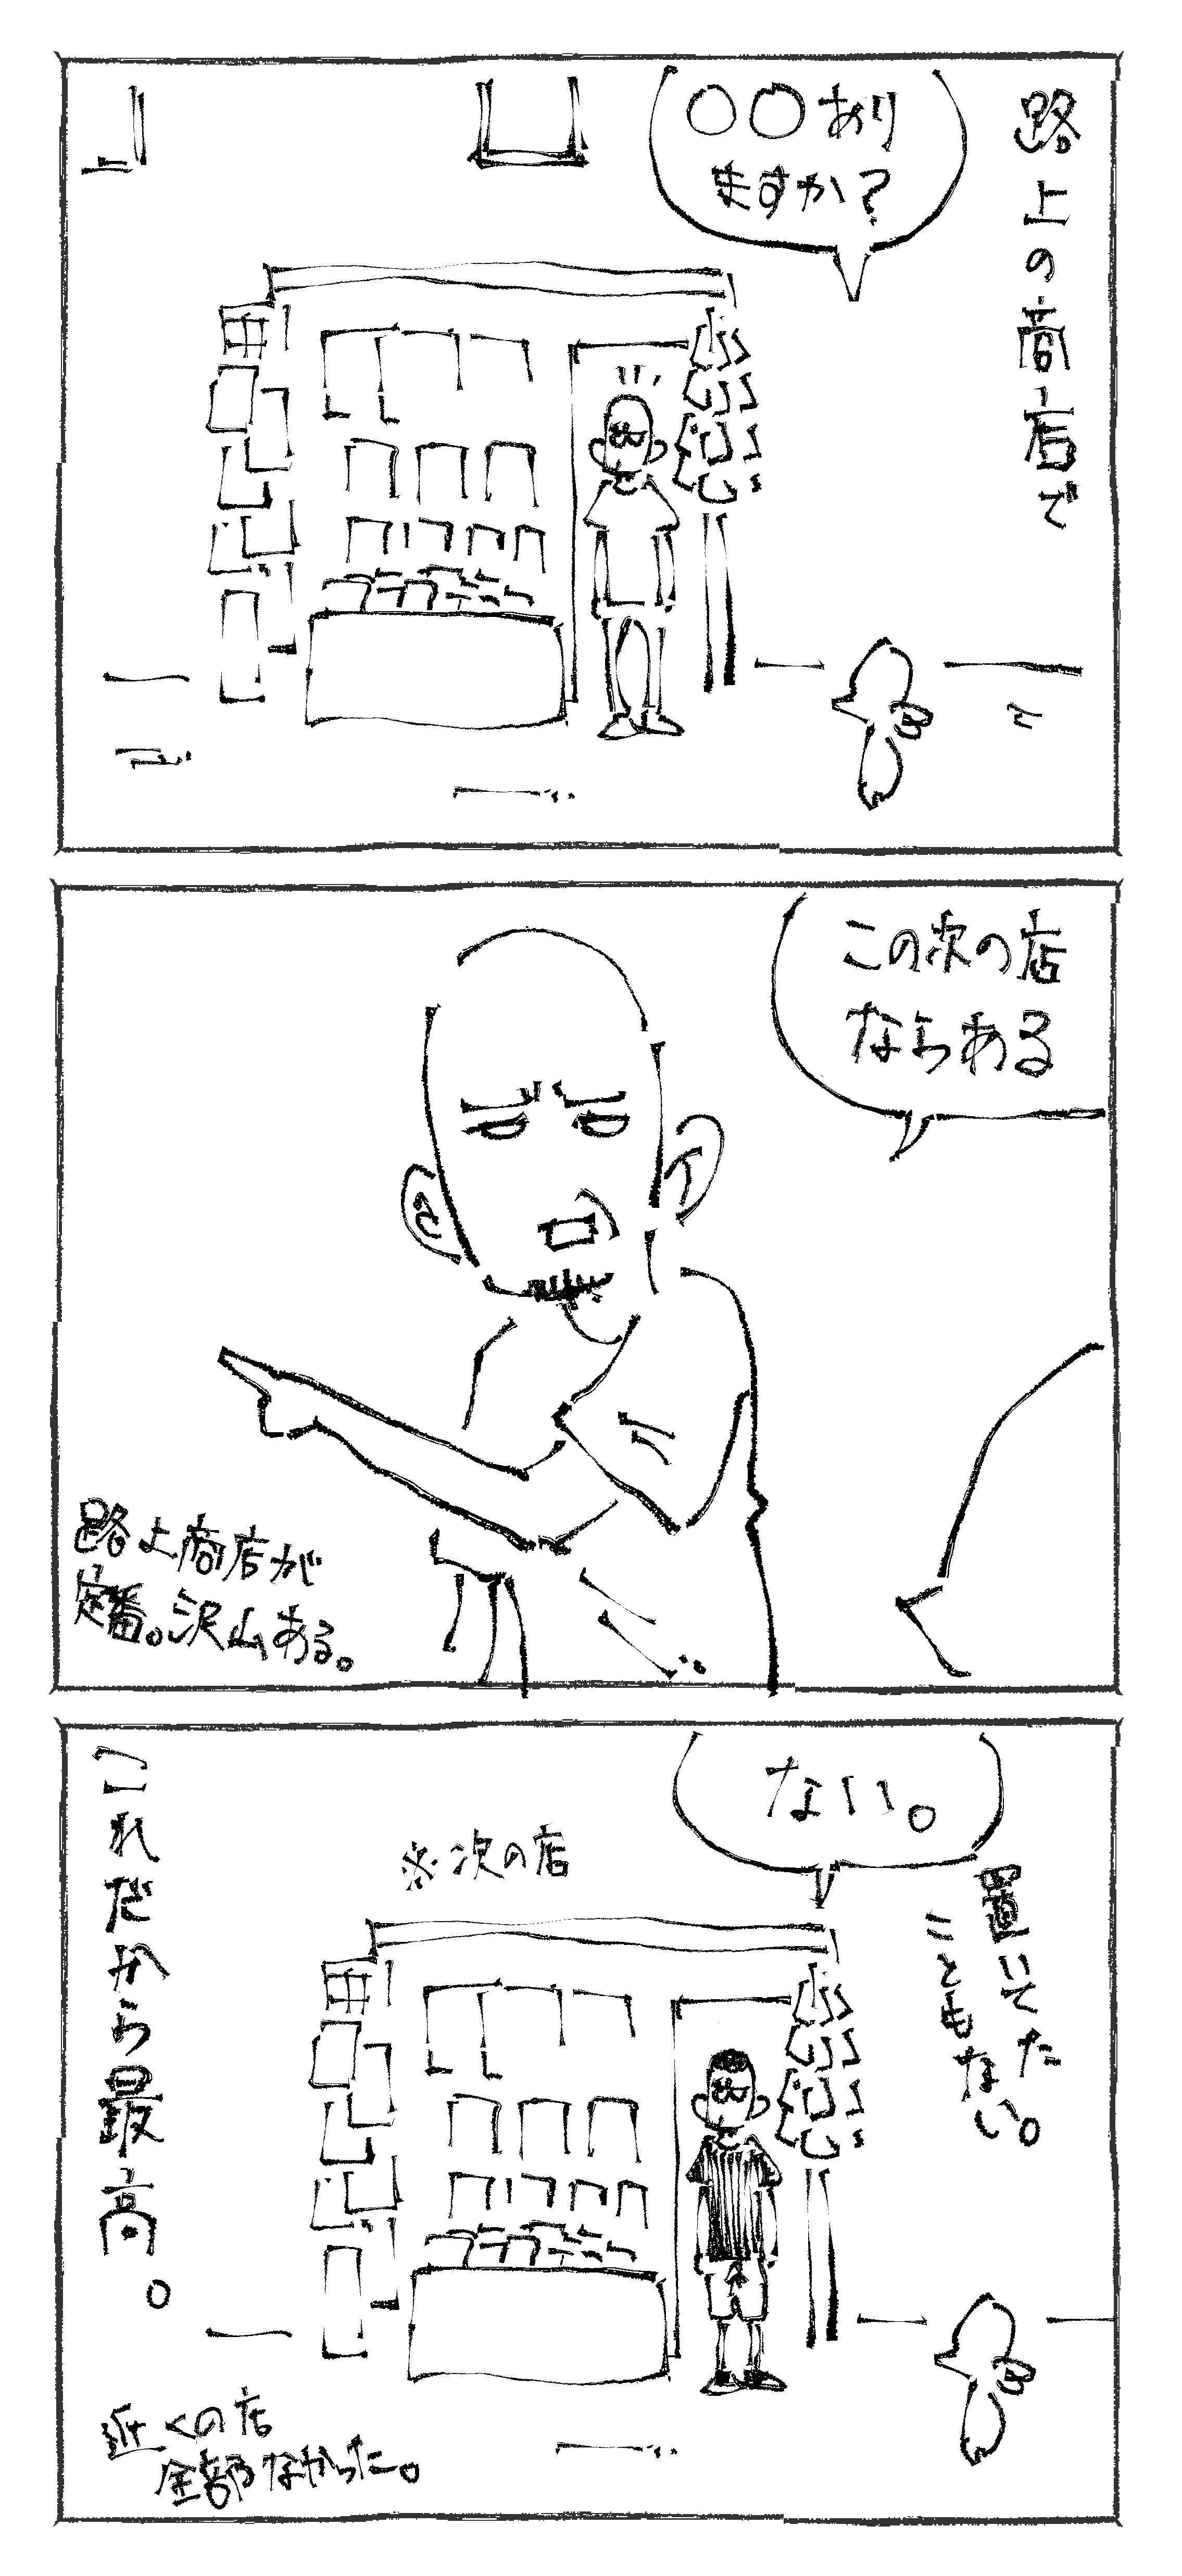 路上の商店で
〇〇あり
ますか?
この次の店
ならある
路上商店が
定番。沢山ある。
ない。
置いてた
こともない。
※次の店
これだから最高。
近くの店
全部なかった。